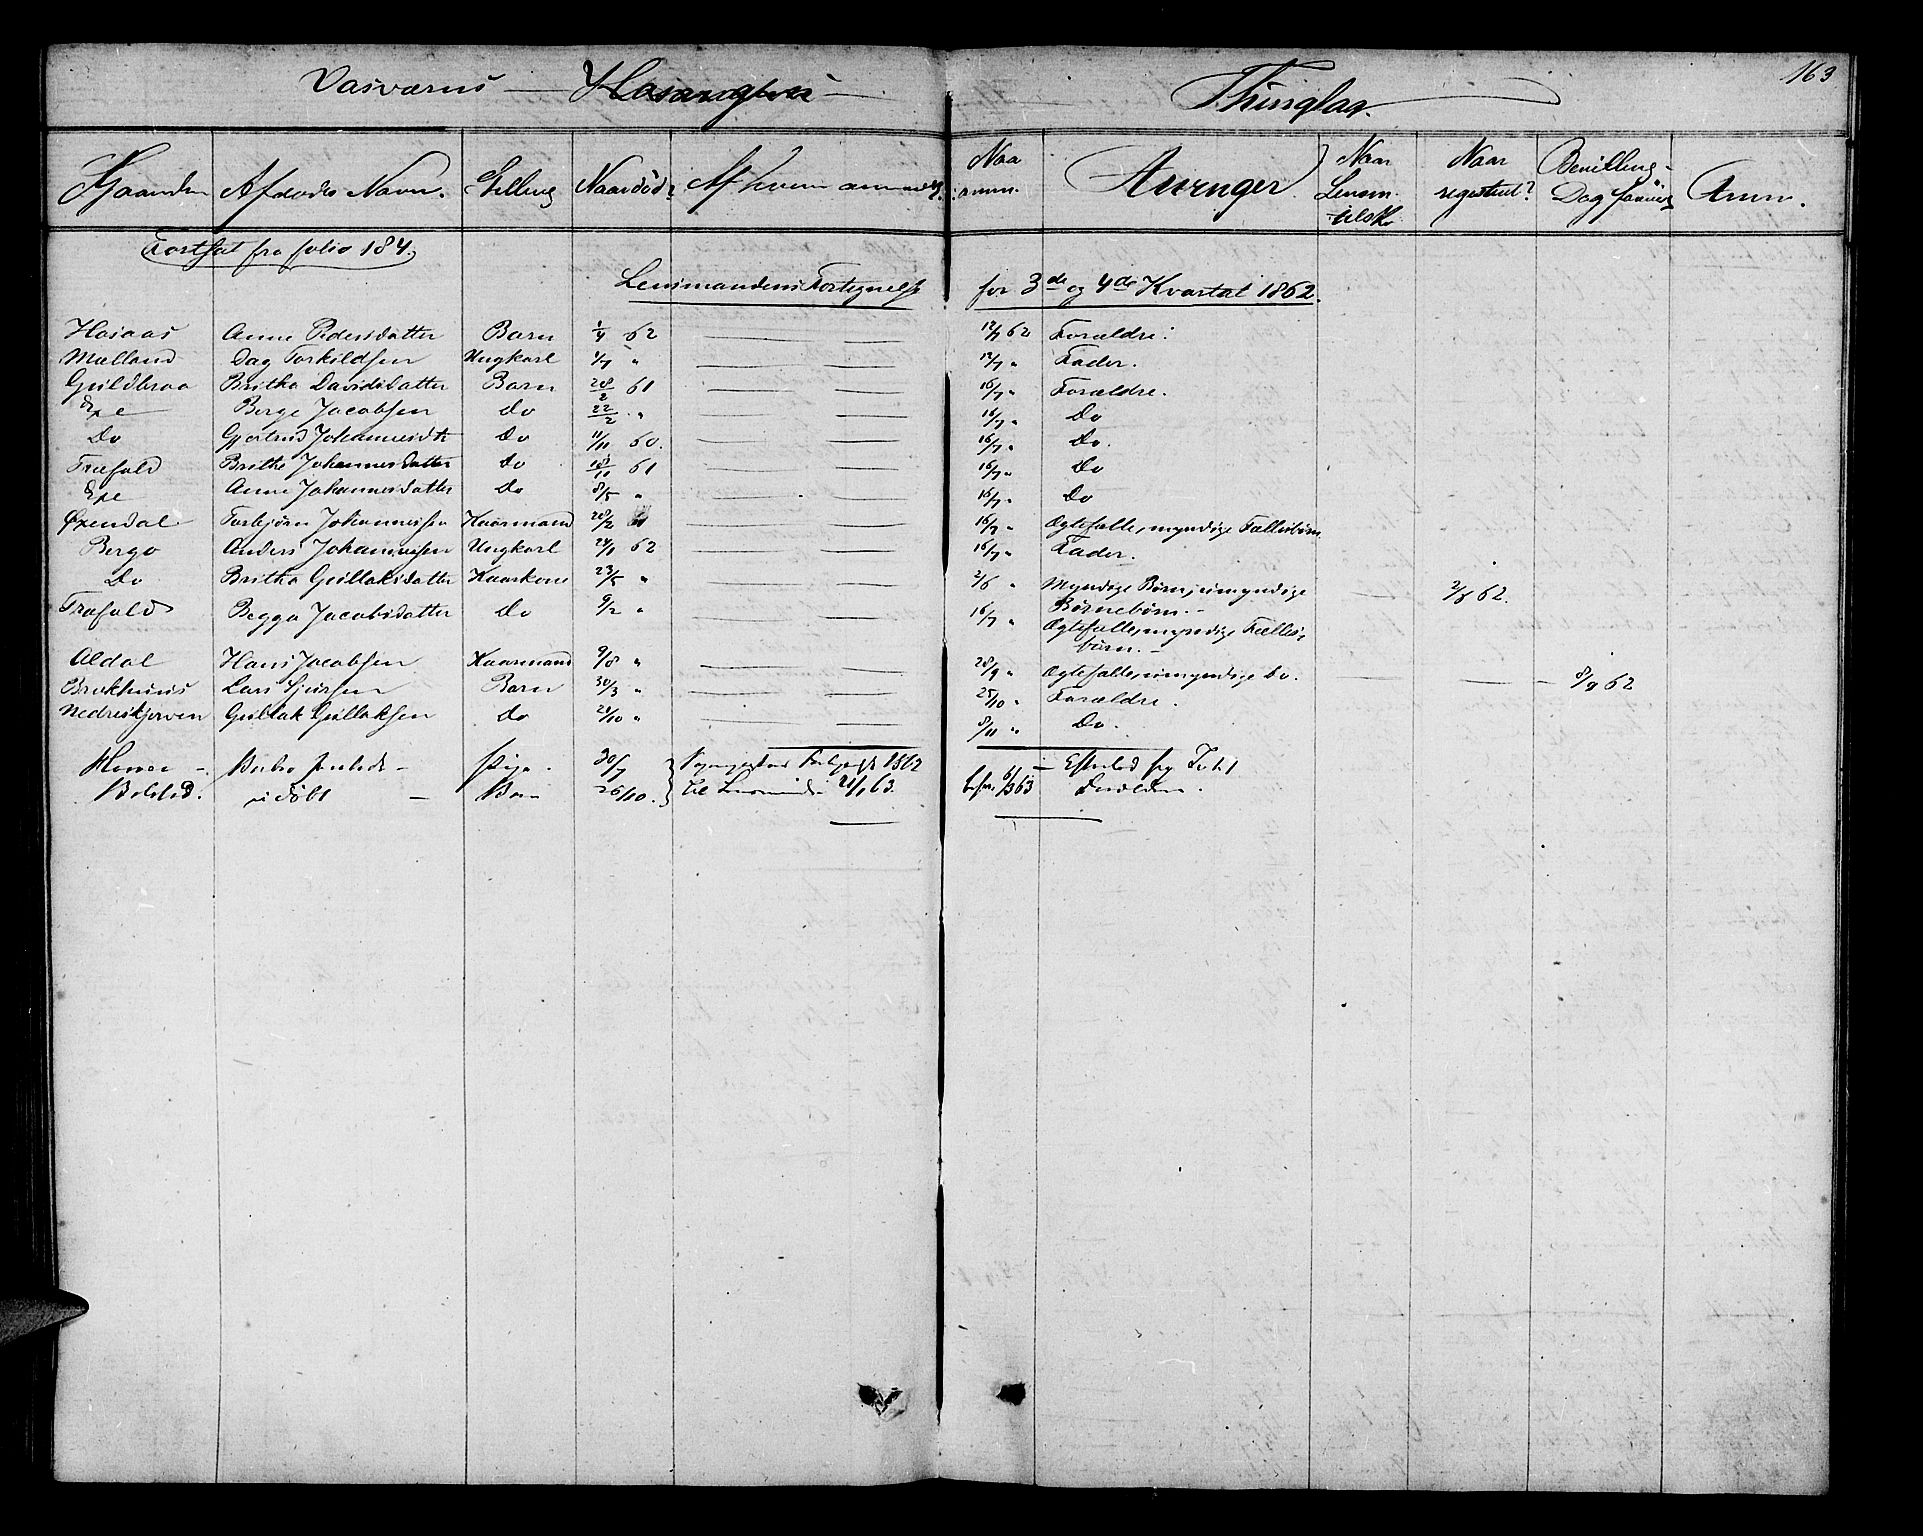 163
Vasværns — Hosanghers — Thinglag.
Gaarden | Afdødes Navn. | Stilling | Naar død? | Af hvem anmeldt. | Naar anm. | Arvinger | Naar Lensm. tilsk. | Naar registreret? | Bevilling Dag | Anm.
Fortsat fra folio 184.
Lensmandens Fortegnelse for 3de og 4de Kvartal 1862.
Hosaas | Anne Pedersdatter | Barn | 1/4 62 | 12/7 62 | Forældre.
Mælland | Dag Torkildsen | Ungkarl | 1/7 " | 12/7 " | Fader.
Guldbraa | Britha Davidsdatter | Barn | 28/2 61 | 16/7 " | Forældre.
Exe | Berge Jacobsen | Do | 22/2 " | 16/7 " | Do
Do | Gjertrud Johannesdt | Do | 11/11 60. | 16/7 " | Do.
Træfald | Britha Johannesdatter | Do | 61 | 16/7 " | Do
Exe | Anne Johannesdatter | Do | 8/5 " | 16/7 " | Do
Øxendal | Torbjørn Johannessen | Kaarmand | 28/2 | 16/7 " | Ægtefælle, myndige Fællesbørn
Bergo | Anders Johannessen | Ungkarl | 24/1 62 | 16/7 " | Fader.
Do | Britha Gullaksdatter | Kaarkone | 23/5 " | 2/6 " | Myndige Børn, umyndige | 2/6 62.
Børnebørn.
Træfald | Begga Jacobsdatter | Do | 9/2 " | 16/7 " | Ægtefælle, myndige Fælles-
børn. —
Aldal | Hans Jacobsen | Kaarmand | 9/8 " | 28/9 " | Ægtefælle, umyndige bø. | 8/9 62
Brækhuus | Lars Sjursen | Barn | 30/3 " | 25/10 " | Forældre.
Nedreskjerven | Gullak Gullaksen | Do | 24/10 " | 8/11 " | Do.
Pige | 30/7 | 1862
Bolstad. | udøbt — | Barn | 26/10. | til 21/1 63. | 6/3 63 | Forældre.